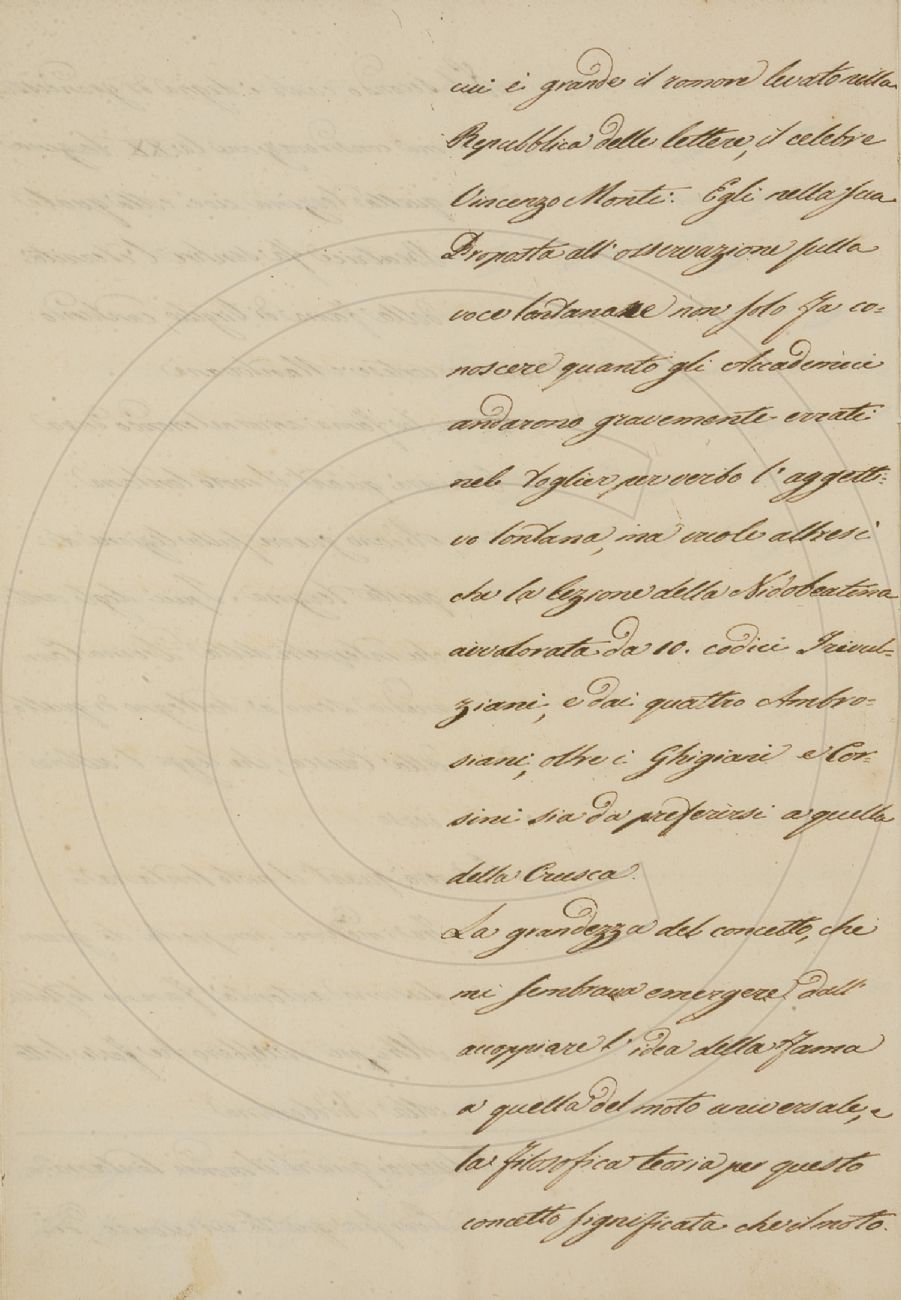 cui è grande il romore levato nella
Repubblica delle lettere, il celebre
Vincenzo Monti. Egli nella sua
Proposta all' osservazione sulla
voce lontanare non solo fa co-
noscere quanto gli Accademici
andarono gravemente errati
nel toglier per verbo l' aggetti-
vo lontana, ma vuole altresì
che la lezione della Nidobeatina
avvalorata da 10. codici Trivul-
ziani, e dai quattro Ambro-
siani, oltre i Ghigiani e Cor-
sini sia da preferirsi a quella
della Crusca.
La grandezza del concetto, che
mi sembrava emergere dall'
accoppiare l' idea della Fama
a quella del moto universale, e
la filosofica teoria per questo
concetto significata che il moto